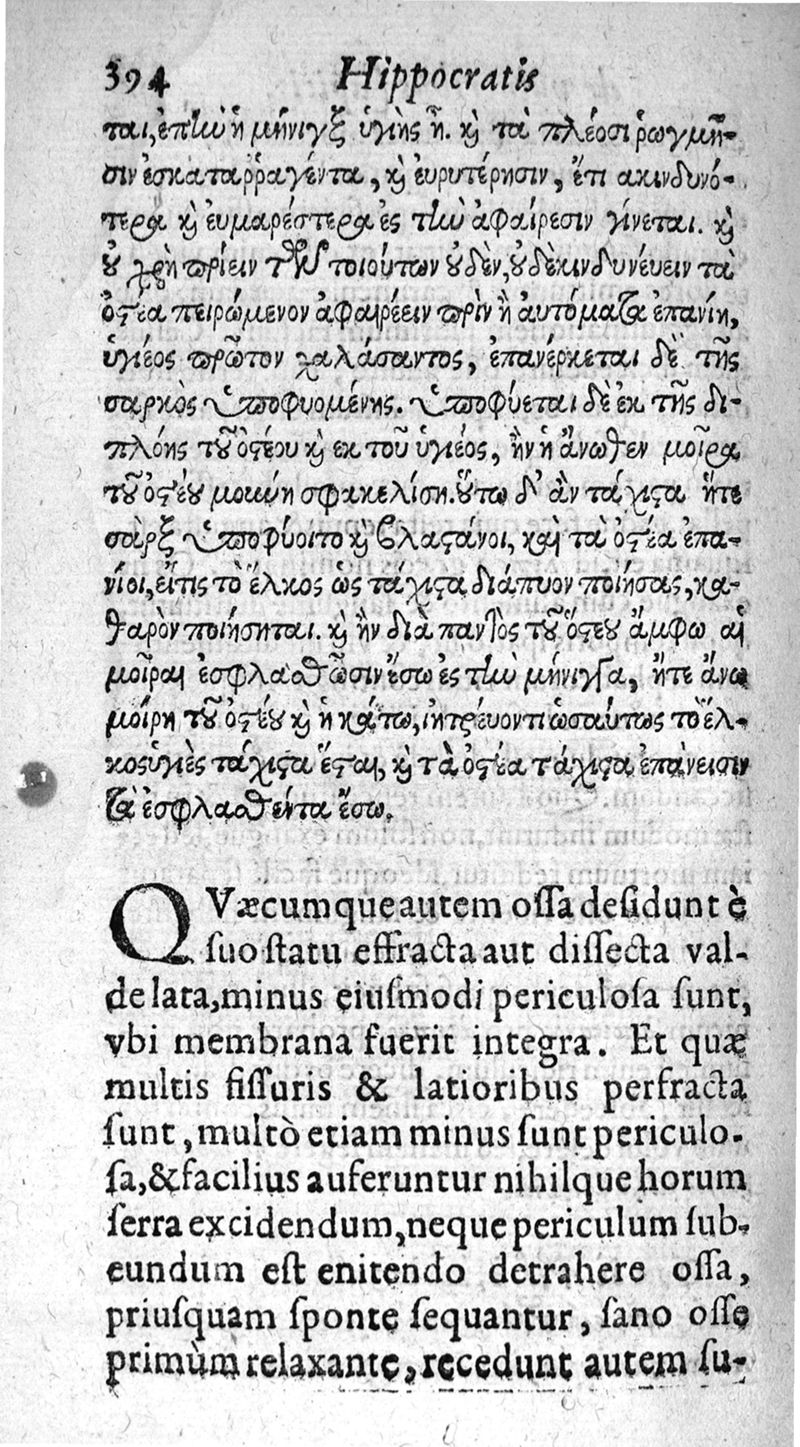 394 Hippocratis
ται, ἐπἰὼ ἡ μήνιγξ ὑγιὴς ᾖ. καὶ τὰ πλέοσι ῥωγμῇ-
σιν ἐσκαταρῥαγέντα, καὶ ἐυρυτέρησιν, ἔτι ακινδυνό-
τερα καὶ ἐυμαρέστερα ἐς τἰὼ ἀφαίρεσιν γίνεται. καὶ
ȣ χρὴ πρίειν τῶν τοιούτων ȣδὲν, ȣδὲ κινδυνέυειν τὰ
ὀστέα πειρώμενον ἀφαιρέειν πρὶν ἢ ἀυτόματα ἐπανίη,
ὑγιέος πρῶτον χαλάσαντος, ἐπανέρκεται δὲ τῆς
σαρκὸς ὑποφυομένης. ὑποφύεται δὲ ἐκ τῆς δι-
πλόης τȣ͂ ὀστέου καὶ εκ τοῦ ὑγιέος, ἢν ἡ ἄνωθεν μοῖρα
τȣ͂ ὀστέȣ μούνη σφακελίση. ȣ̔́τω δ' ἂν τάχιστα ἥτε
σὰρξ ὑποφύοιτο καὶ βλαστάνοι, καὶ τὰ ὀστέα ἐπα-
νίοι, εἴτις τὸ ἕλκος ὡς τάχιστα διάπυον ποιήσας, κα-
θαρὸν ποιήσηται. καὶ ἢν διὰ παντὸς τȣ͂ ὄστεȣ ἄμφω αἱ
μοῖραι ἐσφλασθῶσιν ἔσω ἐς τἰὼ μήνιγγα, ἥτε ἄνω
μοίρη τȣ͂ ὀστέȣ καὶ ἡ κάτω, ἰητρέυοντι ὡσαύτως τὸ ἕλ-
κος ὑγιὲς τάχιστα ἔσται, καὶ τὰ ὀστέα τάχιστα ἐπάνεισιν
τὰ ἐσφλασθέντα ἔσω.
QVæcumque autem ossa desidunt è
suo statu effracta aut dissecta val-
de lata, minus eiusmodi periculosa sunt,
vbi membrana fuerit integra. Et quæ
multis fissuris & latioribus perfracta
sunt, multò etiam minus sunt periculo-
sa, & facilius auferuntur nihilque horum
serra excidendum, neque periculum sub-
eundum est enitendo detrahere ossa,
priusquam sponte sequantur, sano osse
primùm relaxante, recedunt autem su-